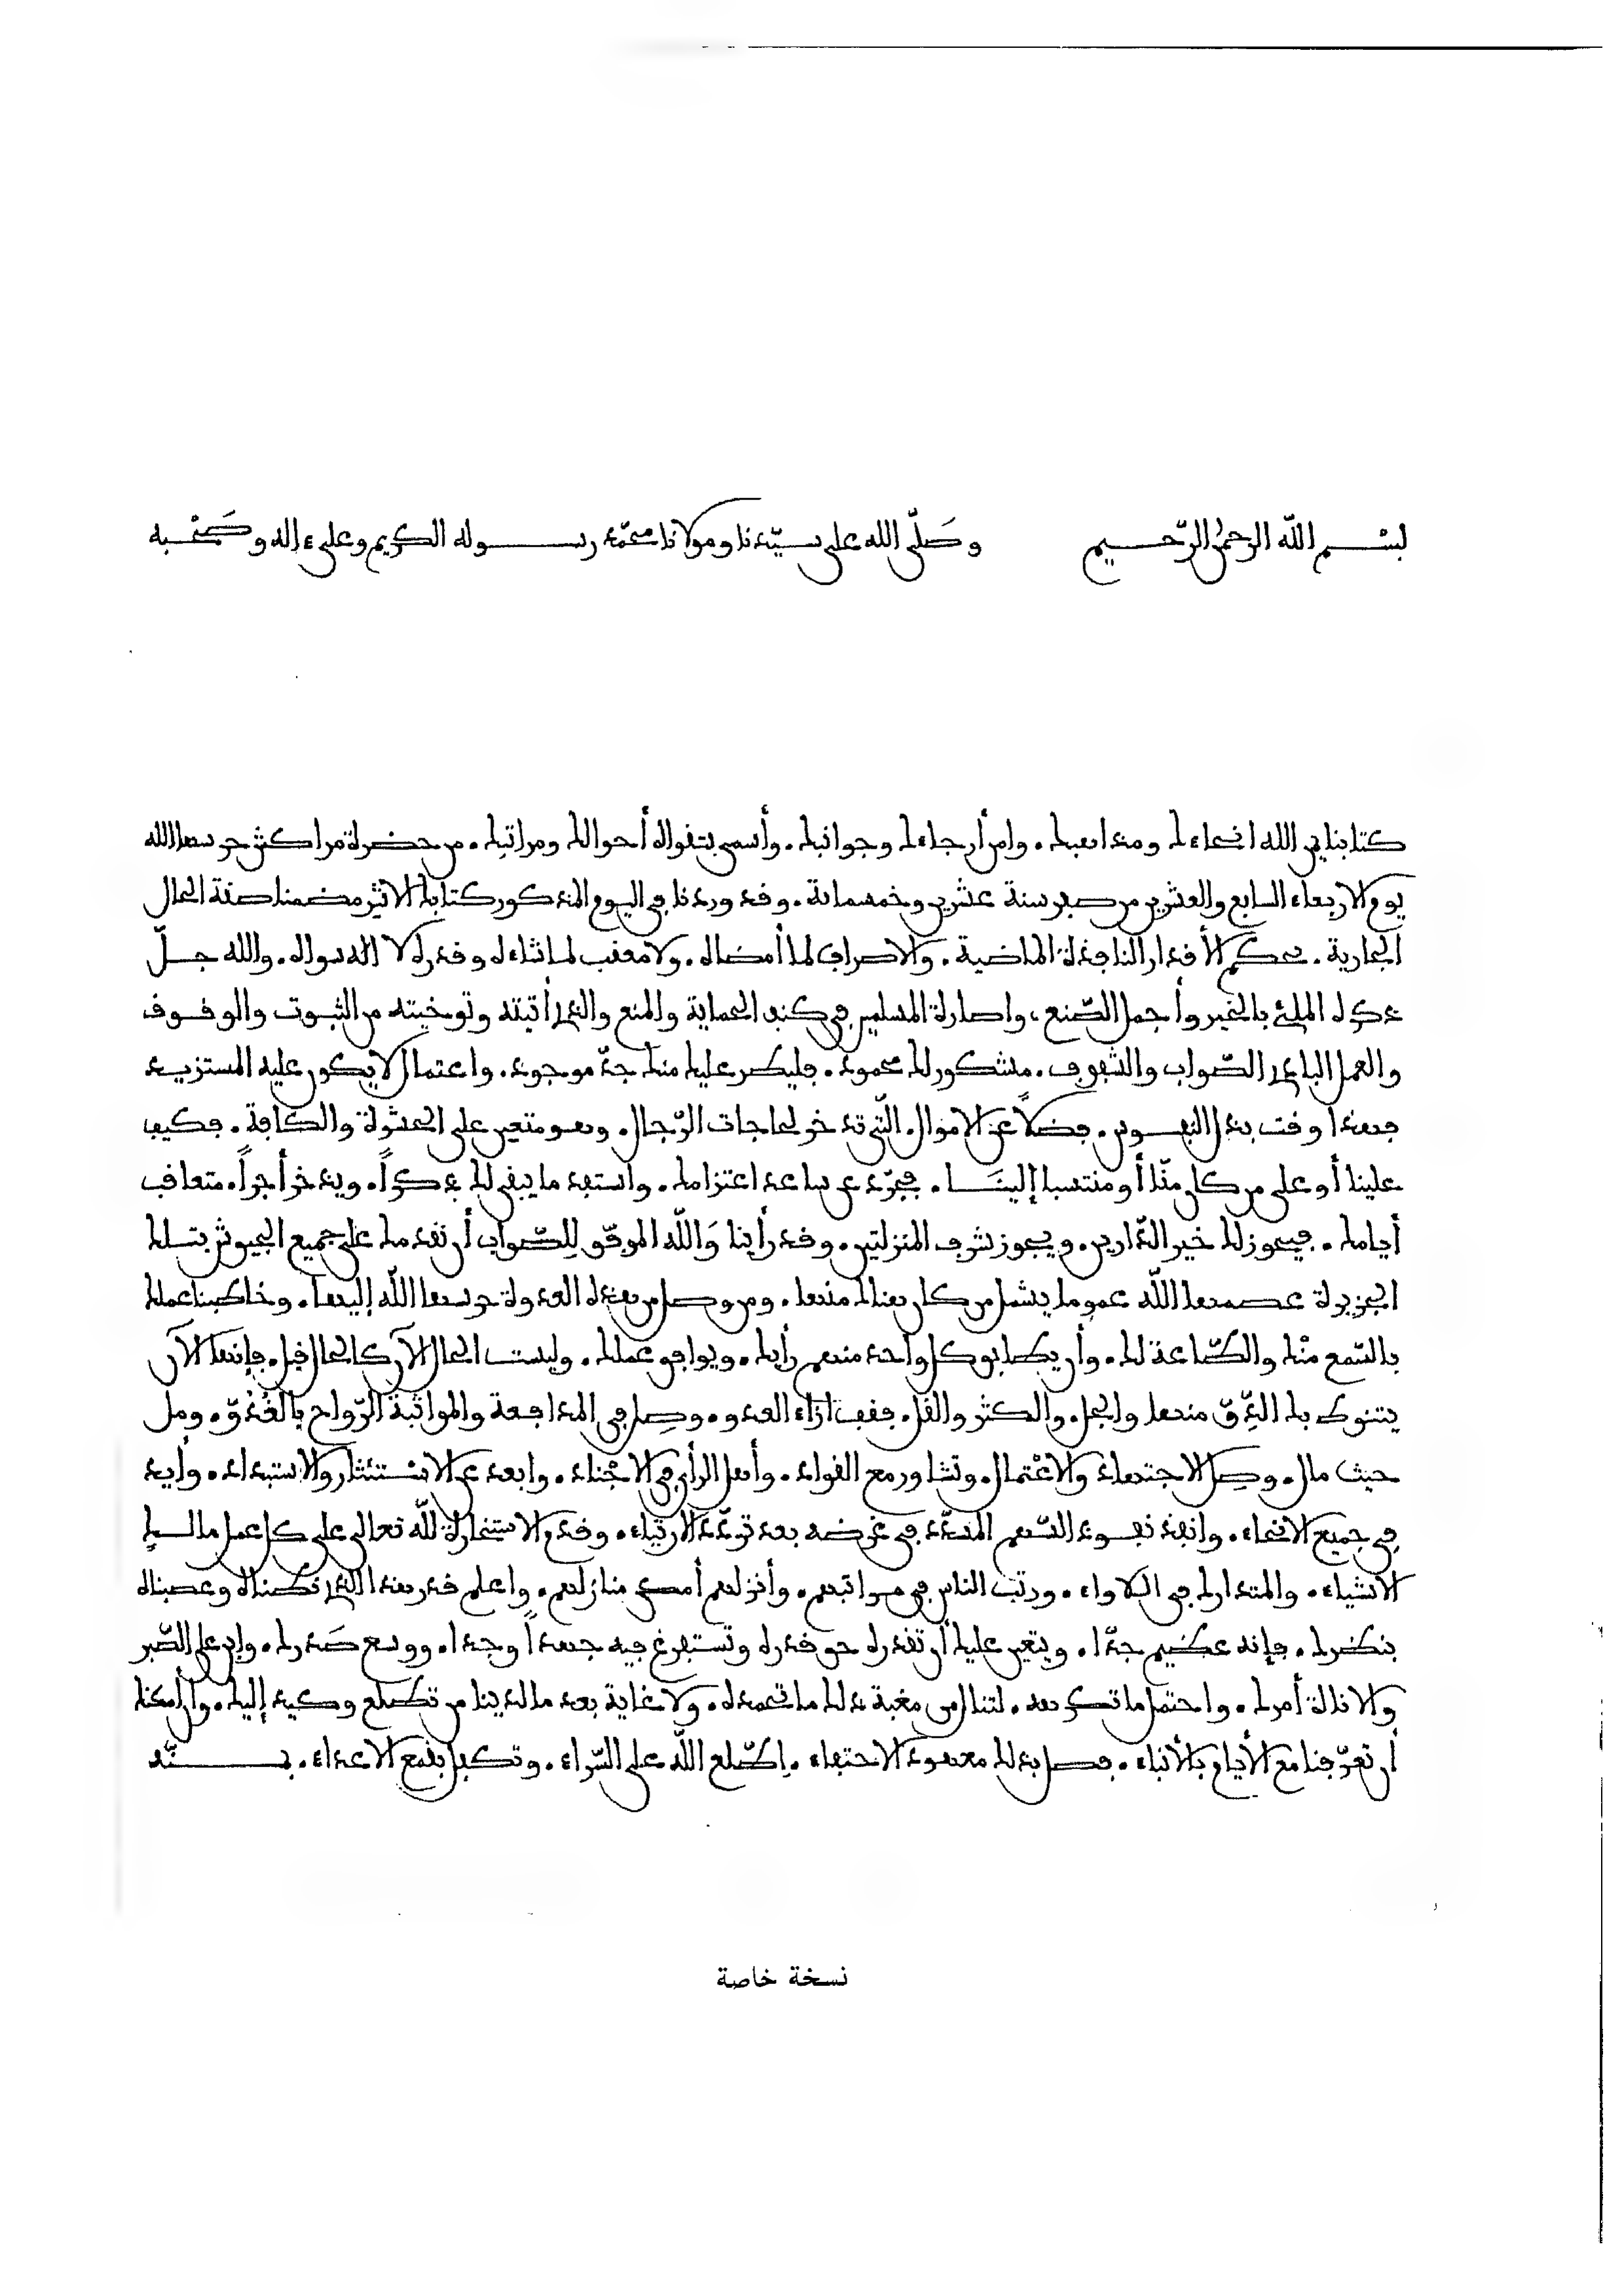 بِسْمِ اللّه الرحمٰن الرّحيم وصَلّى الله على سيّدنا ومولانا محمّد رسوله الكريم وعلى ءاله وصَحْبه
كتابنا الله أنحاءك ومذاهبك. وامن أرجاءك وجوانبك. وأسمى بتقواه أحوالك ومراتبك. من حضرة مراكش حرسها الله
يوم الاربعاء السابع والعشرين من صفر سنة عشرين وخمسمائة. وقد وردنا في اليوم المذكور كتابك الاثير مضمنا صفة الحال
الجارية. بحكم الأقدار النافذة الماضية. ولا صراف لما أمضاه. ولا معقب لما شاءه وقدره لا اله سواه. والله جلّ
ذكره الملئ بالخير وأجمل الصّنع، واصارة المسلمين في كنف الحماية والمنع والذي أتيته وتوخيته من الثبوت والوقوف
والعمل البادي الصّواب والشفوف. مشكور لك محمود. فليكن عليك منك جدّ موجود. واعتمال لا يكون عليه المستزيد
جهدا وقت بذل النفوس. فضلاً عن الاموال. الّتي تدخر لحاجات الرّجال. وهو متعين على الحشوة والكافة. فكيف
علينا أو على من كان منّا أو منتسبا إلينَا. فجرّد عن ساعد اعتزامك. واستفد ما يبقى لك ذكراً. ويدخر أجراً. متعاقب
أيامك. فيحوز لك خير الدّارين. ويحوز شرف المنزلتين. وقد رأينا وَاللّه الموفّق لِلصّواب أن نقدمك على جميع الجيوش بتلك
الجزيرة عصمها اللّه عموما يشمل من كان هنالك منها. ومن وصل من هذه العدوة حرسها اللّه إليها. وخاطبنا عمالك
بالسّمع منْك والطّاعة لك. وأن يطابق كل واحد منهم رأيك. ويوافق عملك. وليست الحال الآن كالحال قبل. فإنها الآن
يتنوط بك الدِّقّ منها والجل. والكثر والقل. فقف ازاء العدو. وصِل في المدافعة والمواثبة الرّواح بالغُدُوّ. ومل
حيث مال. وصِل الاجتهاد والاعْتمال. وتشاور مع القواد. وأهل الرأي في الاجْناد. وابعد عن الاسْتئثار والاستبداد. وأيد
في جميع الانحاء. وانفذ نفوذ السّهم المسدّد في غرضه بعد تودّد الارتياء. وقدم الاستخارة للّه تعالى على كل عمل مالك
الاشياء. والمتدارك في اللاواء. ورتب الناس في مراتبهم. وأنزلهم أمضى منازلهم. واعلم قدر هذا الذي نطناه وعصبناه
بنظرك. فإنه عظيم جدّا. ويتعين عليك أن تقدره حق قدره وتستفرغ فيه جهداً وجدا. ووسع صَدرك. وابن على الصّبر
والاناة أمرك. واحتمل ما تكرهه. لتنال من مغبة ذلك ما تحمده. ولا غاية بعد ما لدينا من تطلع وكيد إليك. وان أمكنك
أن تعرّفنا مع الأيام بالأنباء. فصل بذلك معهود الاحتفاء. اِطّلع اللّه على السّراء. وتكفل بقمع الاعداء. بمنّه
نسخة خاصة